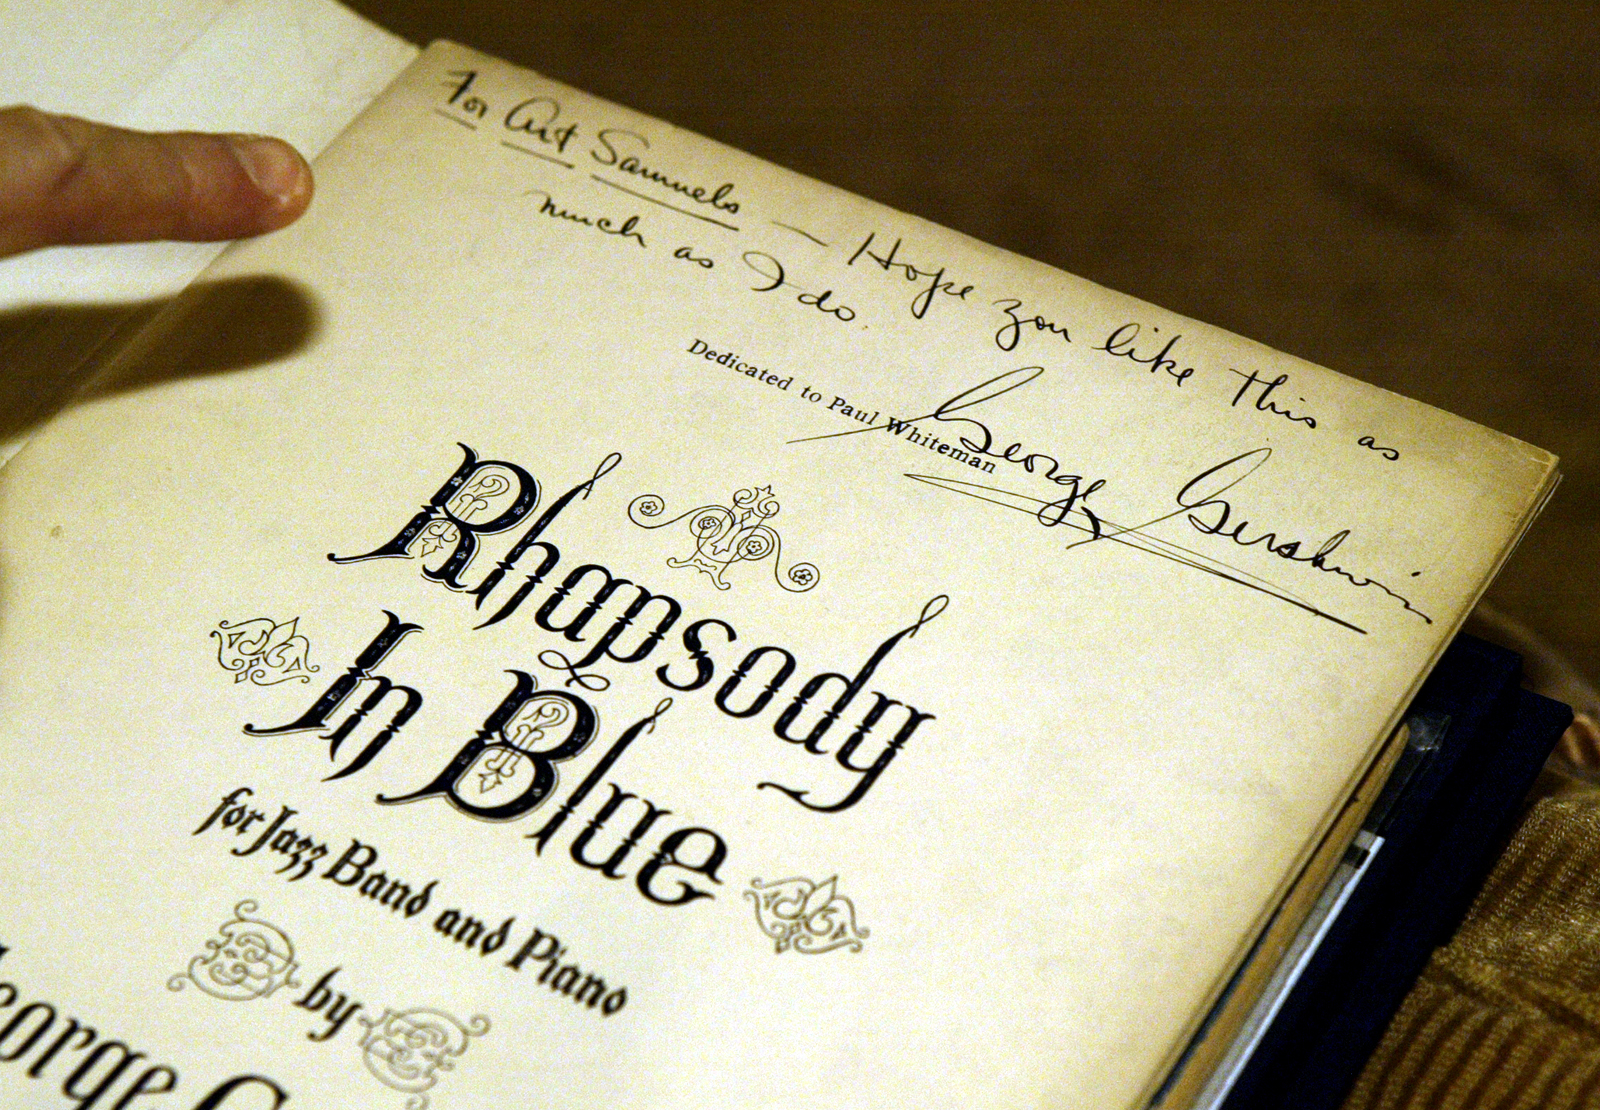 For Art Samuels — Hope you like this as
much as I do.
George Gershwin
Dedicated to Paul Whiteman
Rhapsody
In Blue
for Jazz Band and Piano
by